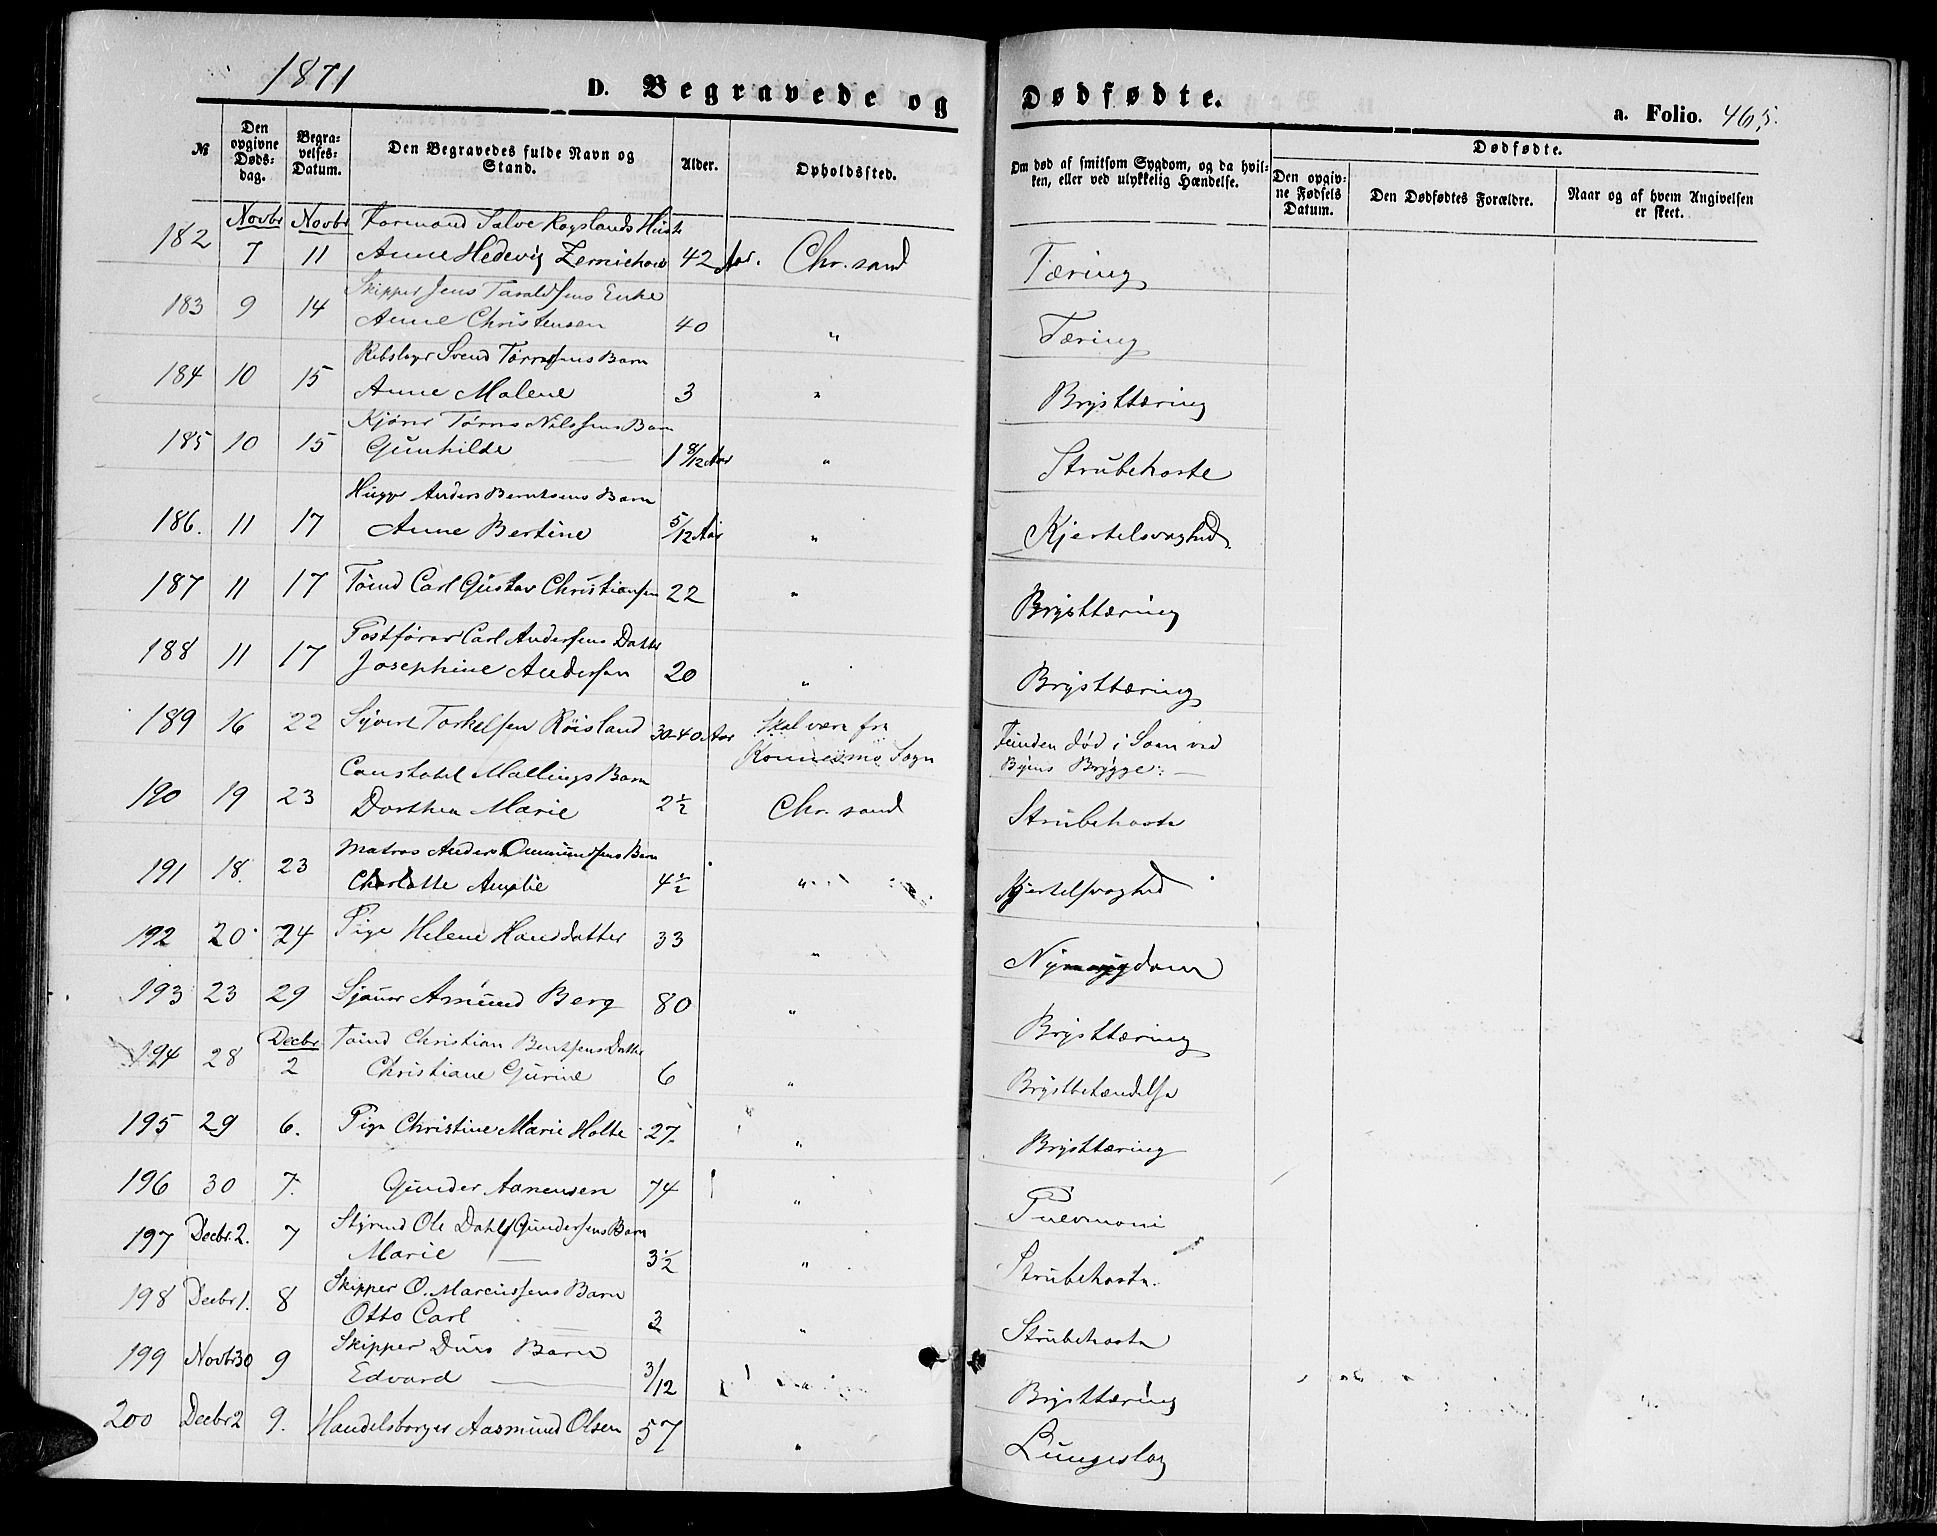 1871
D. Begravede og Dødfødte.
a. Folio. 465.
№ Den opgivne Døds-dag. Begra-velses-Datum. Den Begravedes fulde Navn og Stand. Alder. Opholdssted. Om død af smitsom Sygdom, og da hvil-ken, eller ved ulykkelig Hændelse. Dødfødte. Den opgiv-ne Fødsels Datum. Den Dødfødtes Forældre. Naar og af hvem Angivelsen er skeet.
Novbr Novbr Formand Salve Hust
182 7 11 Anne Hedevig 42 Aar. Chr. sand Tæring
Skipper Jens Taraldsens Enke
183 9 14 Anne Christensen 40 " Tæring
Svend Barn
184 10 15 Anne Malene 3 " Brysttæring
Tørres Nilssens Barn
185 10 15 Gunhilde 1 8/12 Aar " Strubehoste
Anders Berntsens Barn
186. 11 17 Anne Bertine 5/12 Aar " Kjertelsvaghed.
187 11 17 Tømd Carl Gustav Christiansen 22 " Brysttæring
Postfører Carl Andersens Datter
188 11 17 Josephine Andersen 20 " Brysttæring
189 16 22 Syvert Torkelsen Røisland 30-40 Aar Skal være fra Funden død i Søen ved
Konnesmo Sogn Byens Brygge.
Constabel Mallings Barn
190 19 23 Dorthea Marie 2½ Chr. sand Strubehoste
Matros Anders Ommundsens Barn
191 18. 23 Charlotte Amalie 4½ " Kjertelsvaghed
192 20 24 Pige Helene Hansdatter 33 "
193 23 29 Sjouer Amund Berg 80 " Brysttæring
Decbr Tømd Christian Bentsens Datter
194 28 2 Christiane Gurine 6 " Brystbetændelse
195 29 6. Pige Christine Marie Holte 27. " Brysttæring
196 30 7. Gunder Aanensen 74 "
Styrmd Ole Dahl Gundersens Barn
197 Decbr. 2. 7 Marie 3½ " Strubehoste.
Skipper O. Marcussens Barn
198 Decbr 1. 8 Otto Carl 3 " Strubehoste
Skipper Barn
199 Novbr 30 9 Edvard 3/12 " Brysttæring
200 Decbr 2 9. Handelsborger Aasmund Olsen 57 " Lungeslag